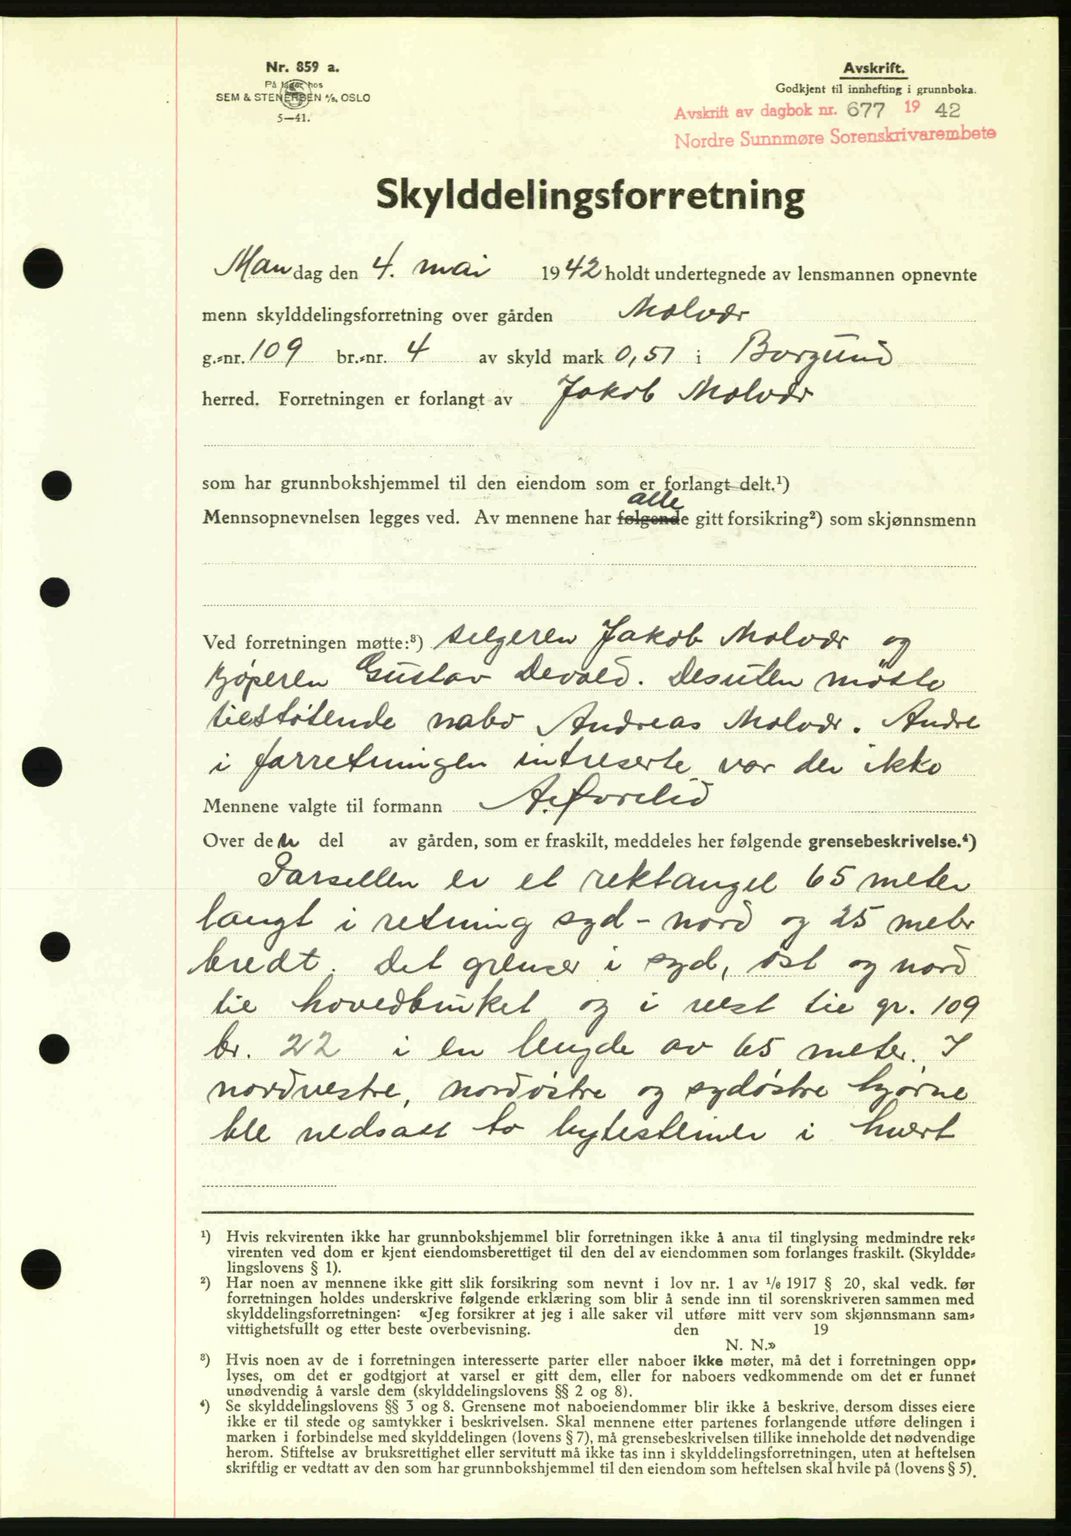 Nr. 859 a.
På lager hos
SEM & STENERSEN A/S, OSLO
5—41.
Avskrift.
Godkjent til innhefting i grunnboka.
Avskrift av dagbok nr. 677 19 42
Nordre Sunnmøre Sorenskrivarembete
Skylddelingsforretning
Mandag den 4. mai 1942 holdt undertegnede av lensmannen opnevnte
menn skylddelingsforretning over gården Molvær
g.-nr. 109 br.-nr. 4 av skyld mark 0,51 i Borgund
herred. Forretningen er forlangt av Jakob Molvær
som har grunnbokshjemmel til den eiendom som er forlangt delt.¹)
alle
Mennsopnevnelsen legges ved. Av mennene har følgende gitt forsikring²) som skjønnsmenn
Ved forretningen møtte:³) selgeren Jakob Molvær og
kjøperen Gustav Devold. Desuten møtte
tilstøtende nabo Andreas Molvær. Andre
i forretningen intreserte var der ikke
Mennene valgte til formann A. Førelid
Over den del av gården, som er fraskilt, meddeles her følgende grensebeskrivelse.⁴)
Parsellen er et rektangel 65 meter
langt i retning syd - nord og 25 meter
bredt. Det grenser i syd, øst og nord
til hovedbruket og i vest til gr. 109
br. 22 i en lengde av 65 meter. I
nordvestre, nordøstre og sydøstre hjørne
ble nedsatt to bytesteiner i hvert
¹) Hvis rekvirenten ikke har grunnbokshjemmel blir forretningen ikke å anta til tinglysing medmindre rek-
virenten ved dom er kjent eiendomsberettiget til den del av eiendommen som forlanges fraskilt. (Skyldde-
lingslovens § 1).
²) Har noen av mennene ikke gitt slik forsikring som nevnt i lov nr. 1 av 1/6 1917 § 20, skal vedk. før
forretningen holdes underskrive følgende erklæring som blir å sende inn til sorenskriveren sammen med
skylddelingsforretningen: «Jeg forsikrer at jeg i alle saker vil utføre mitt verv som skjønnsmann sam-
vittighetsfullt og etter beste overbevisning. den 19
N. N.»
³) Hvis noen av de i forretningen interesserte parter eller naboer ikke møter, må det i forretningen opp-
lyses, om det er godtgjort at varsel er gitt dem, eller for naboers vedkommende om det er funnet
unødvendig å varsle dem (skylddelingslovens §§ 2 og 8).
⁴) Se skylddelingslovens §§ 3 og 8. Grensene mot naboeiendommer blir ikke å beskrive, dersom disses eiere
ikke er til stede og samtykker i beskrivelsen. Skal mennene etter partenes forlangende utføre delingen i
marken i forbindelse med skylddelingen (lovens § 7), må grensebeskrivelsen tillike inneholde det nødvendige
herom. Stiftelse av bruksrettighet eller servitutt må ikke tas inn i skylddelingsforretningen, uten at heftelsen
skriftlig er vedtatt av den som har grunnbokshjemmel til den eiendom som heftelsen skal hvile på (lovens § 5).